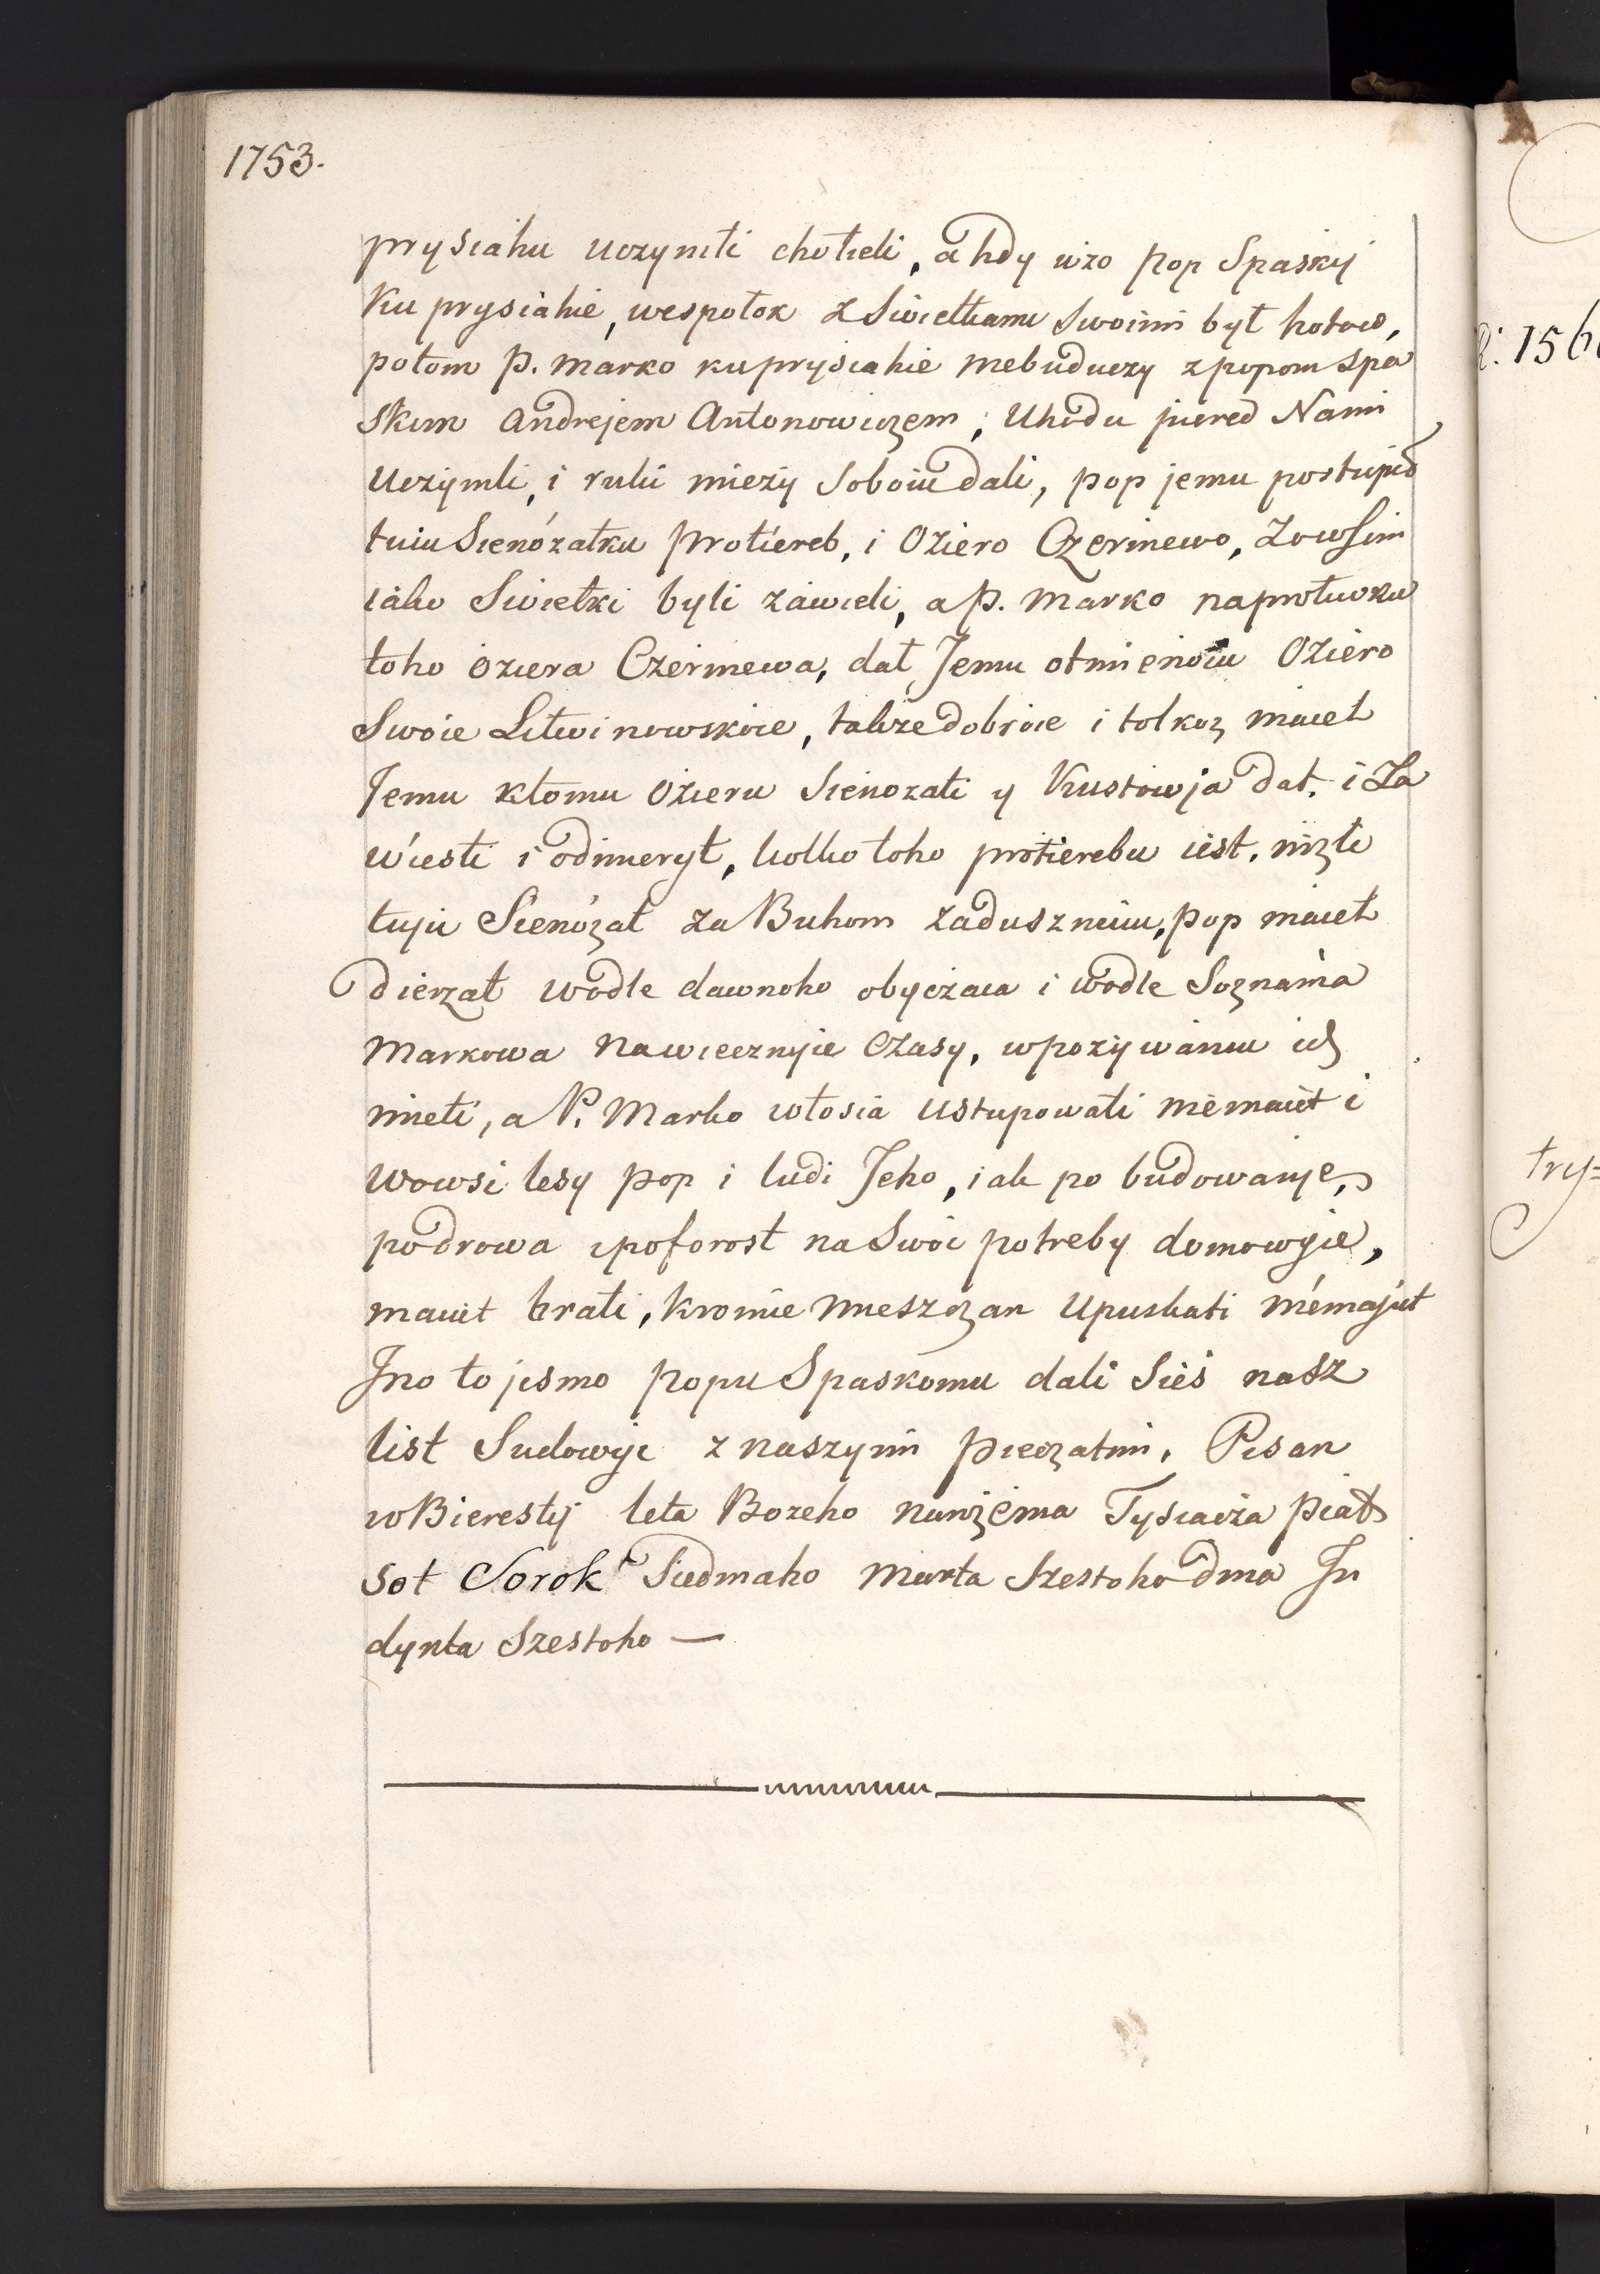 1753.
prysiahu uczyniti chotieli, a hdy użo pop Spaskij
Ku prysiahie, wespołok z Swietkami Swoimi był hotow,
potom P. Marko ku prysiahie niebuduczy z popom Spa
Skim Andrejem Antonowiczem, Uhodu pered Nami
Uczynili, i ruki mieży Soboiu dali, pop jemu postupił
tuiu Sienożatku Protiereb, i Oziero Czerniewo, Zowsim
iako Swietki byli zawieli, a P. Marko naprotiwku
toho oziera Czerniewa, dał Jemu otmienoiu Oziero
Swoie Litwinowskoie, także dobroie i tolkoż maiet
Jemu ktomu Ozieru Sienożati y Kustowja dat, i Za
wiesti i odmieryt, kolko toho protierebu iest, niżli
tuju Sienożat za Buhom zadusznuiu, pop maiet
dierżat wodle dawnoho obyczaia i wodle Soznania
Markowa na wiecznyie Czasy, w pożywaniu ich
mieti, a P. Marko wtosia ustupowati niemaiet i
wowsi lesy pop i ludi Jeho, iak po budowanje,
po drowa i po forost na Swoi potreby domowyie,
maiut brati, kromie mieszczan Upuskati niemajut
Jno to jesmo popu Spaskomu dali Sies nasz
list Sudowyi z naszymi pieczatmi, Pisan
w Bieresty leta Bożeho narożenia Tysiacza piat
sot Sorok Siedmaho Marta Szestoho dnia In
dykta Szestoho —
R: 156
try=